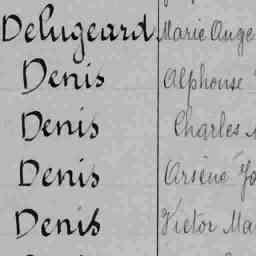 Delugeard Marie Ange
Denis Alphonse
Denis Charles
Denis Arsène
Denis Victor Ma